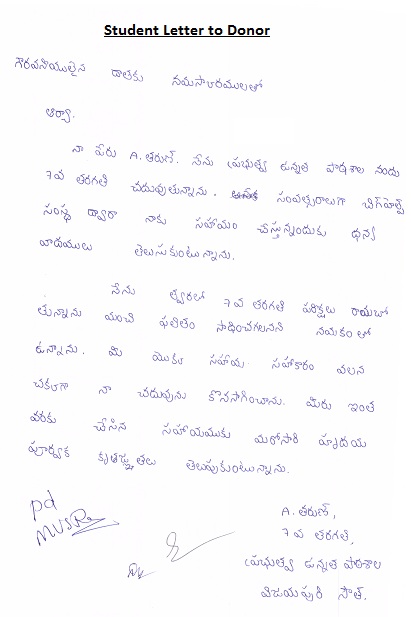 Student Letter to Donor
గౌరవనీయులైన దాతకు నమస్కారములతో
ఆర్యా.
నా పేరు A. తరుణ్. నేను ప్రభుత్వ ఉన్నత పాఠశాల నందు
7వ తరగతి చదువుతున్నాను. సంవత్సరాలుగా బిగ్‌హెల్ప్
సంస్థ ద్వారా నాకు సహాయం చేస్తున్నందుకు ధన్య
వాదములు తెలుసుకుంటున్నాను.
నేను త్వరలో 7వ తరగతి పరిక్షలు రాయబో
తున్నాను మంచి ఫలితం సాధించగలనని నమకం తో
ఉన్నాను. మీ యొక్క సహాయ సహకారం వలన
చక్కగా నా చదువును కొనసాగించాను. మీరు ఇంత
వరకు చేసిన సహాయముకు మరోసారి హృదయ
పూర్వక కృతజ్ఞతలు తెలుపుకుంటున్నాను.
A. తరుణ్,
7వ తరగతి,
ప్రభుత్వ ఉన్నత పాఠశాల
విజయపురి సౌత్.
pd